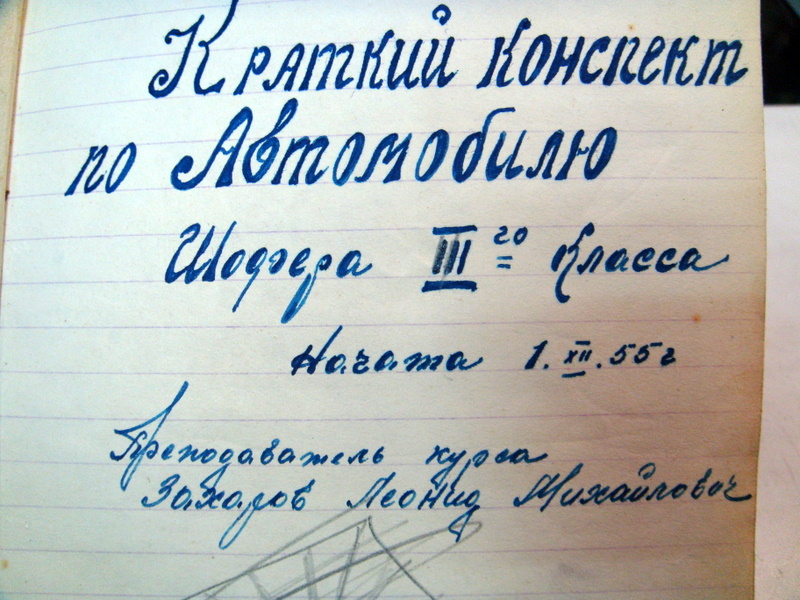 Краткий конспект
по Автомобилю
Шофера III го класса
Начата 1.XII.55г
Преподаватель курса
Захаров Леонид Михайлович